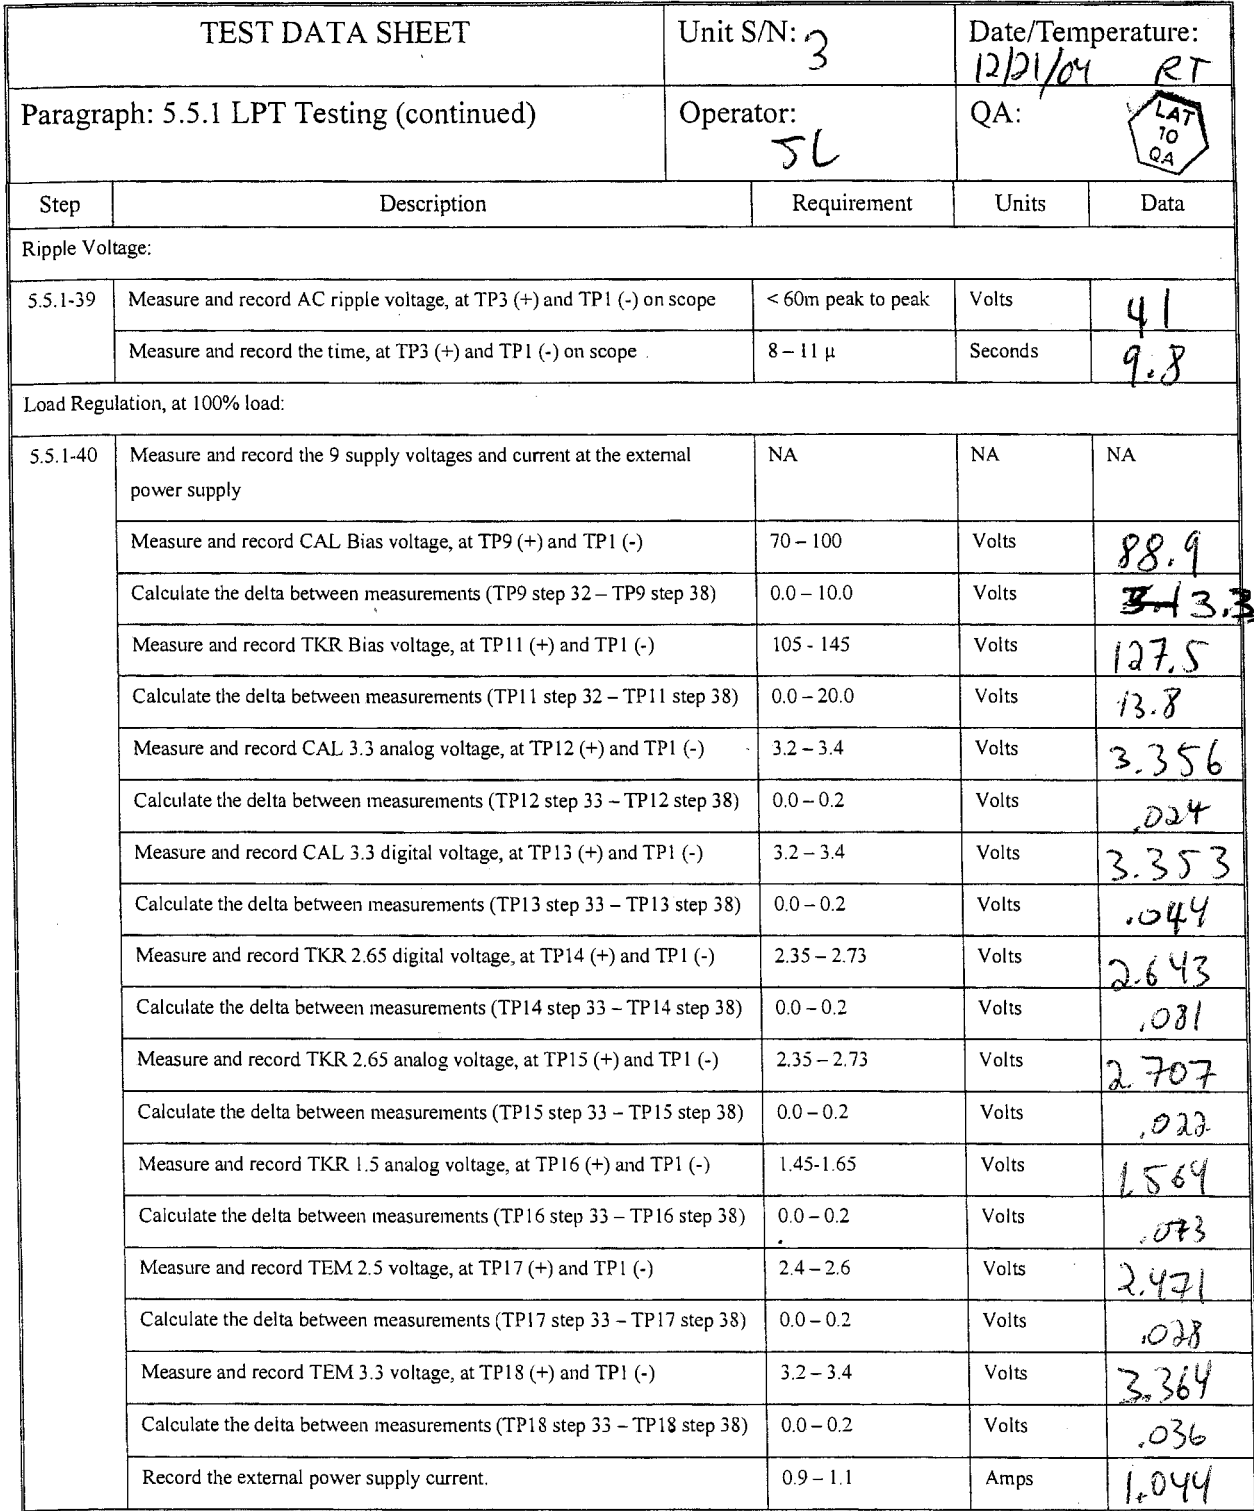 TEST DATA SHEET
Unit S/N: 3
Date/Temperature:
12/21/04 RT
Paragraph: 5.5.1 LPT Testing (continued)
Operator:
JL
QA:
LAT
10
QA
Step Description Requirement Units Data
Ripple Voltage:
5.5.1-39 Measure and record AC ripple voltage, at TP3 (+) and TP1 (-) on scope < 60m peak to peak Volts 41
Measure and record the time, at TP3 (+) and TP1 (-) on scope 8 – 11 μ Seconds 9.8
Load Regulation, at 100% load:
5.5.1-40 Measure and record the 9 supply voltages and current at the external NA NA NA
power supply
Measure and record CAL Bias voltage, at TP9 (+) and TP1 (-) 70 – 100 Volts 88.9
Calculate the delta between measurements (TP9 step 32 – TP9 step 38) 0.0 – 10.0 Volts 3.3
Measure and record TKR Bias voltage, at TP11 (+) and TP1 (-) 105 - 145 Volts 127.5
Calculate the delta between measurements (TP11 step 32 – TP11 step 38) 0.0 – 20.0 Volts 13.8
Measure and record CAL 3.3 analog voltage, at TP12 (+) and TP1 (-) 3.2 – 3.4 Volts 3.356
Calculate the delta between measurements (TP12 step 33 – TP12 step 38) 0.0 – 0.2 Volts .024
Measure and record CAL 3.3 digital voltage, at TP13 (+) and TP1 (-) 3.2 – 3.4 Volts 3.353
Calculate the delta between measurements (TP13 step 33 – TP13 step 38) 0.0 – 0.2 Volts .044
Measure and record TKR 2.65 digital voltage, at TP14 (+) and TP1 (-) 2.35 – 2.73 Volts 2.643
Calculate the delta between measurements (TP14 step 33 – TP14 step 38) 0.0 – 0.2 Volts .081
Measure and record TKR 2.65 analog voltage, at TP15 (+) and TP1 (-) 2.35 – 2.73 Volts 2.707
Calculate the delta between measurements (TP15 step 33 – TP15 step 38) 0.0 – 0.2 Volts .022
Measure and record TKR 1.5 analog voltage, at TP16 (+) and TP1 (-) 1.45-1.65 Volts 1.564
Calculate the delta between measurements (TP16 step 33 – TP16 step 38) 0.0 – 0.2 Volts .073
Measure and record TEM 2.5 voltage, at TP17 (+) and TP1 (-) 2.4 – 2.6 Volts 2.471
Calculate the delta between measurements (TP17 step 33 – TP17 step 38) 0.0 – 0.2 Volts .028
Measure and record TEM 3.3 voltage, at TP18 (+) and TP1 (-) 3.2 – 3.4 Volts 3.364
Calculate the delta between measurements (TP18 step 33 – TP18 step 38) 0.0 – 0.2 Volts .036
Record the external power supply current. 0.9 – 1.1 Amps 1.044